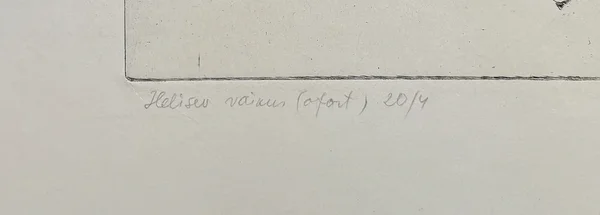 Helisev vaikus (ofort) 20/4